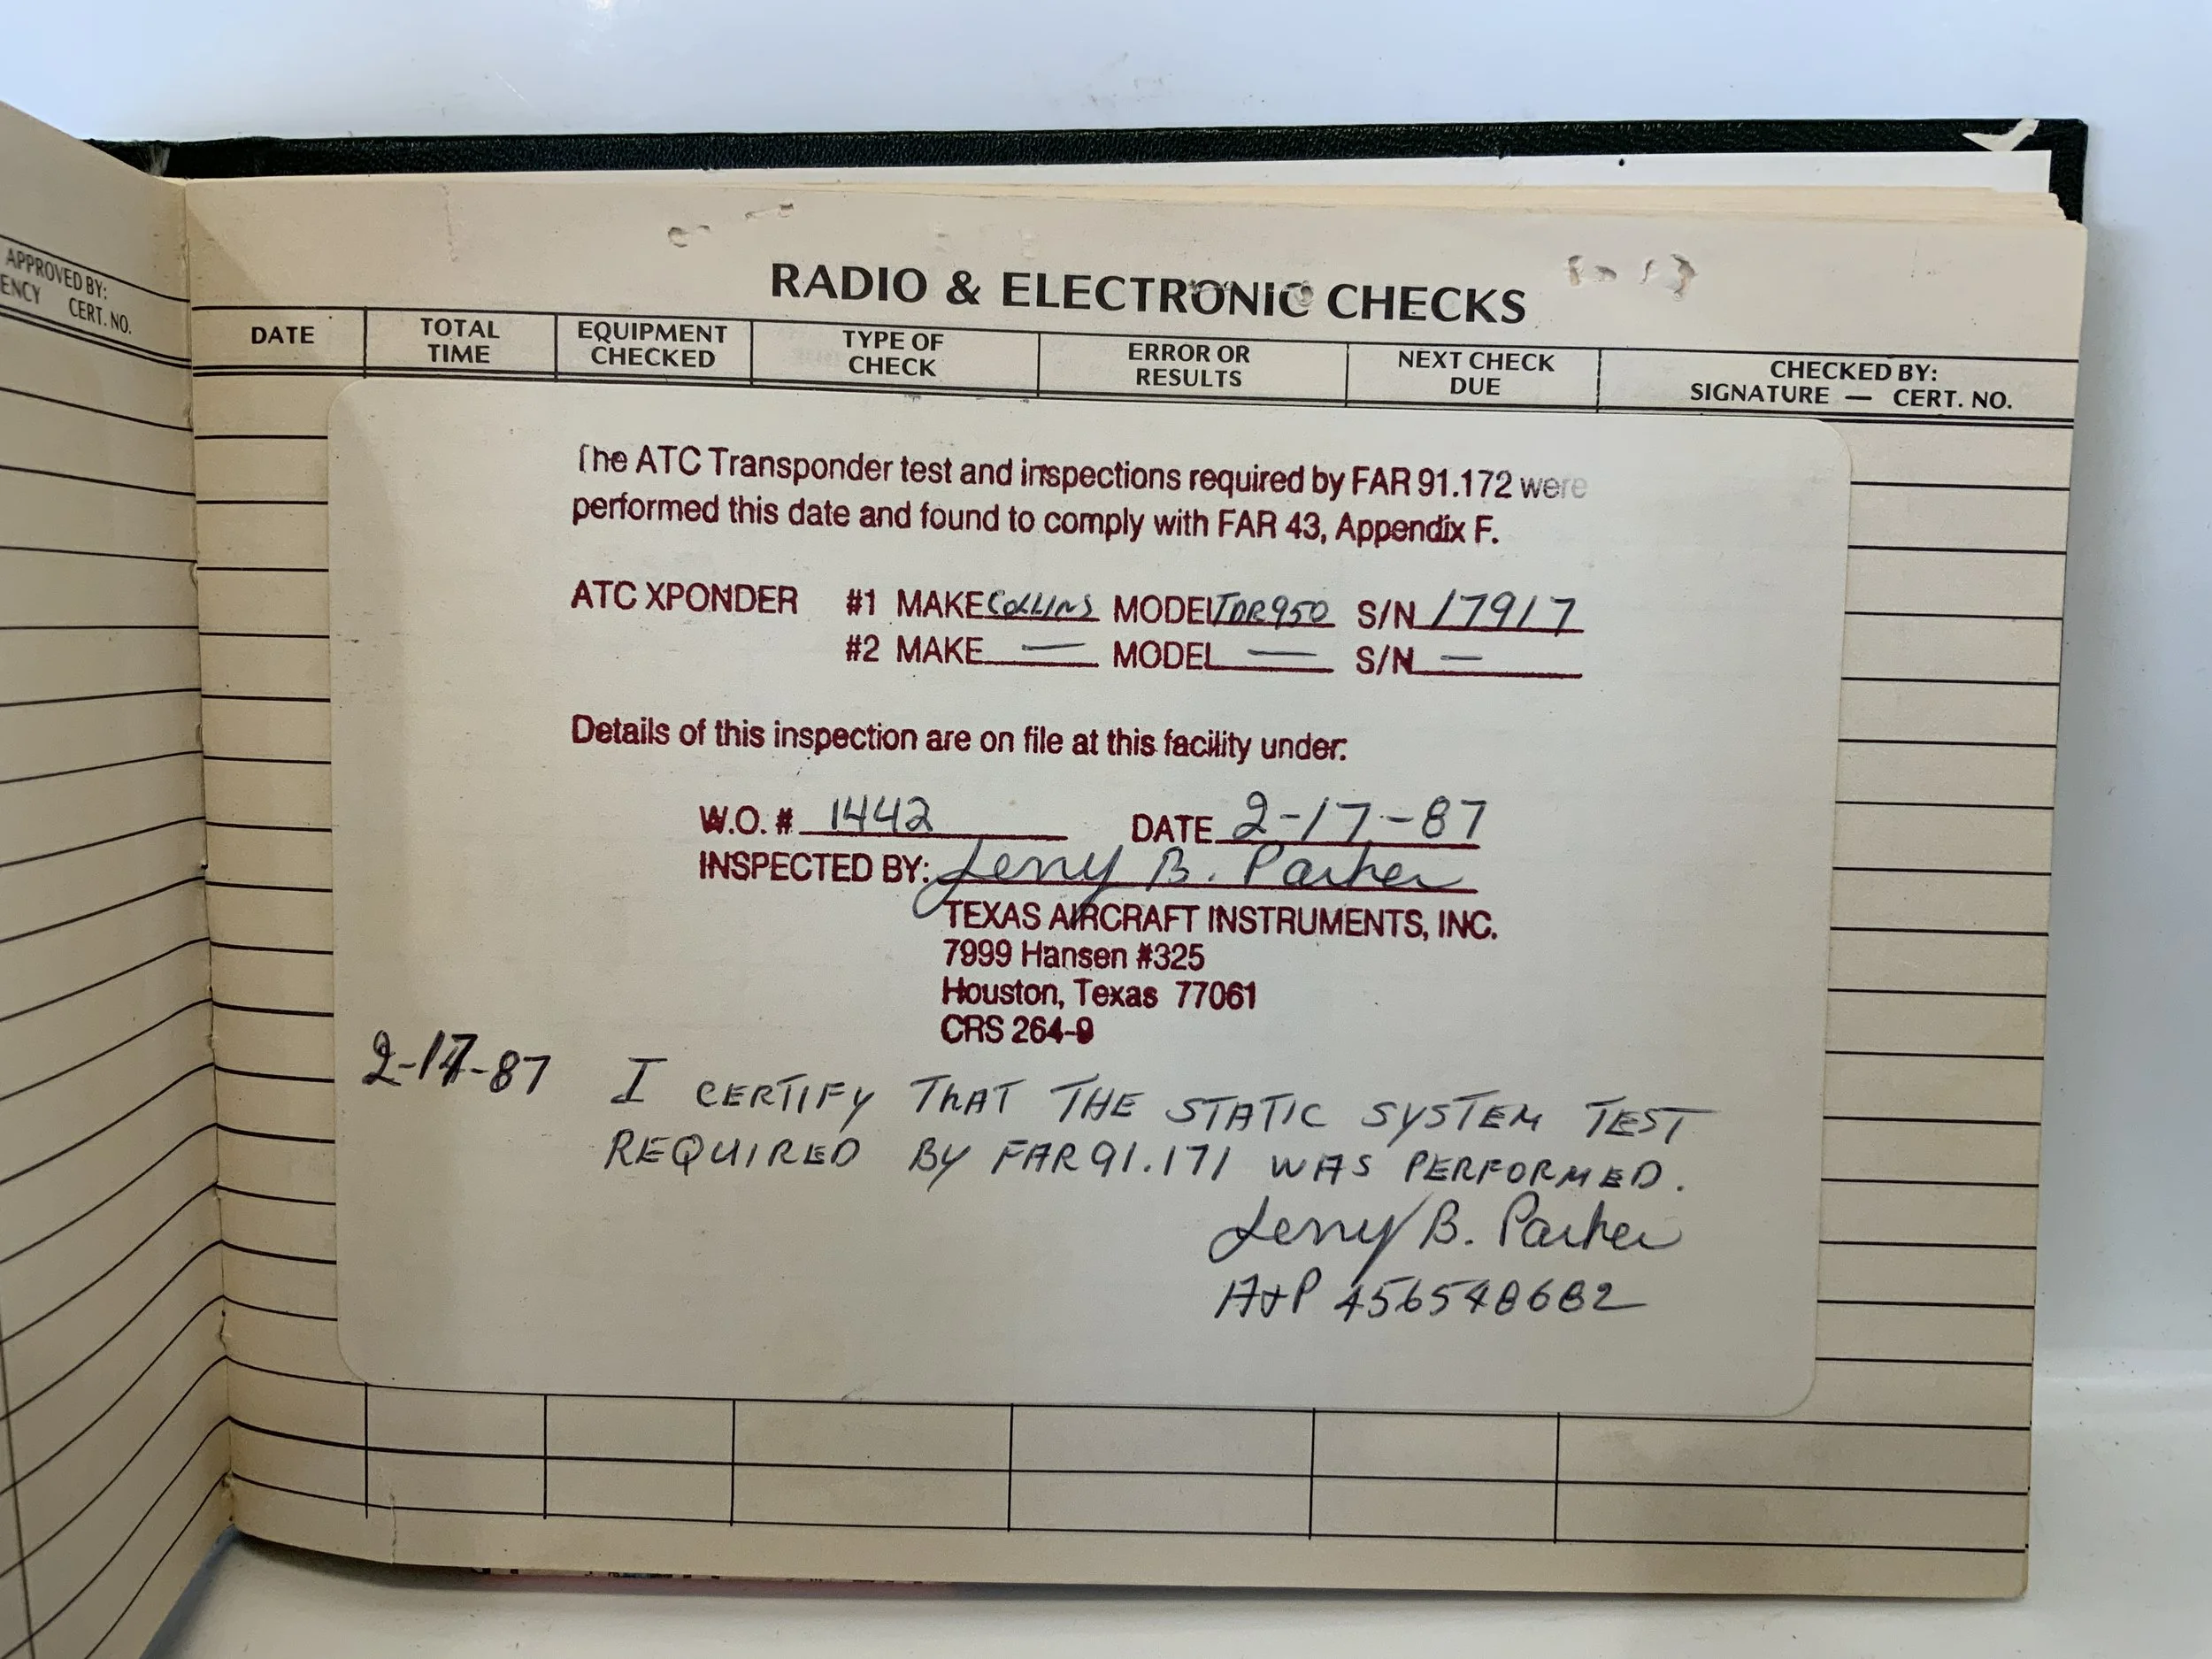 APPROVED BY:
ENCY CERT. NO.
RADIO & ELECTRONIC CHECKS
DATE TOTAL TIME EQUIPMENT CHECKED TYPE OF CHECK ERROR OR RESULTS NEXT CHECK DUE CHECKED BY: SIGNATURE — CERT. NO.
The ATC Transponder test and inspections required by FAR 91.172 were
performed this date and found to comply with FAR 43, Appendix F.
ATC XPONDER #1 MAKE COLLINS MODEL TDR950 S/N 17917
#2 MAKE — MODEL — S/N —
Details of this inspection are on file at this facility under:
W.O. # 1442 DATE 2-17-87
INSPECTED BY: Jerry B. Parker
TEXAS AIRCRAFT INSTRUMENTS, INC.
7999 Hansen #325
Houston, Texas 77061
CRS 264-9
2-17-87 I CERTIFY THAT THE STATIC SYSTEM TEST
REQUIRED BY FAR 91.171 WAS PERFORMED.
Jerry B. Parker
A+P 456548682